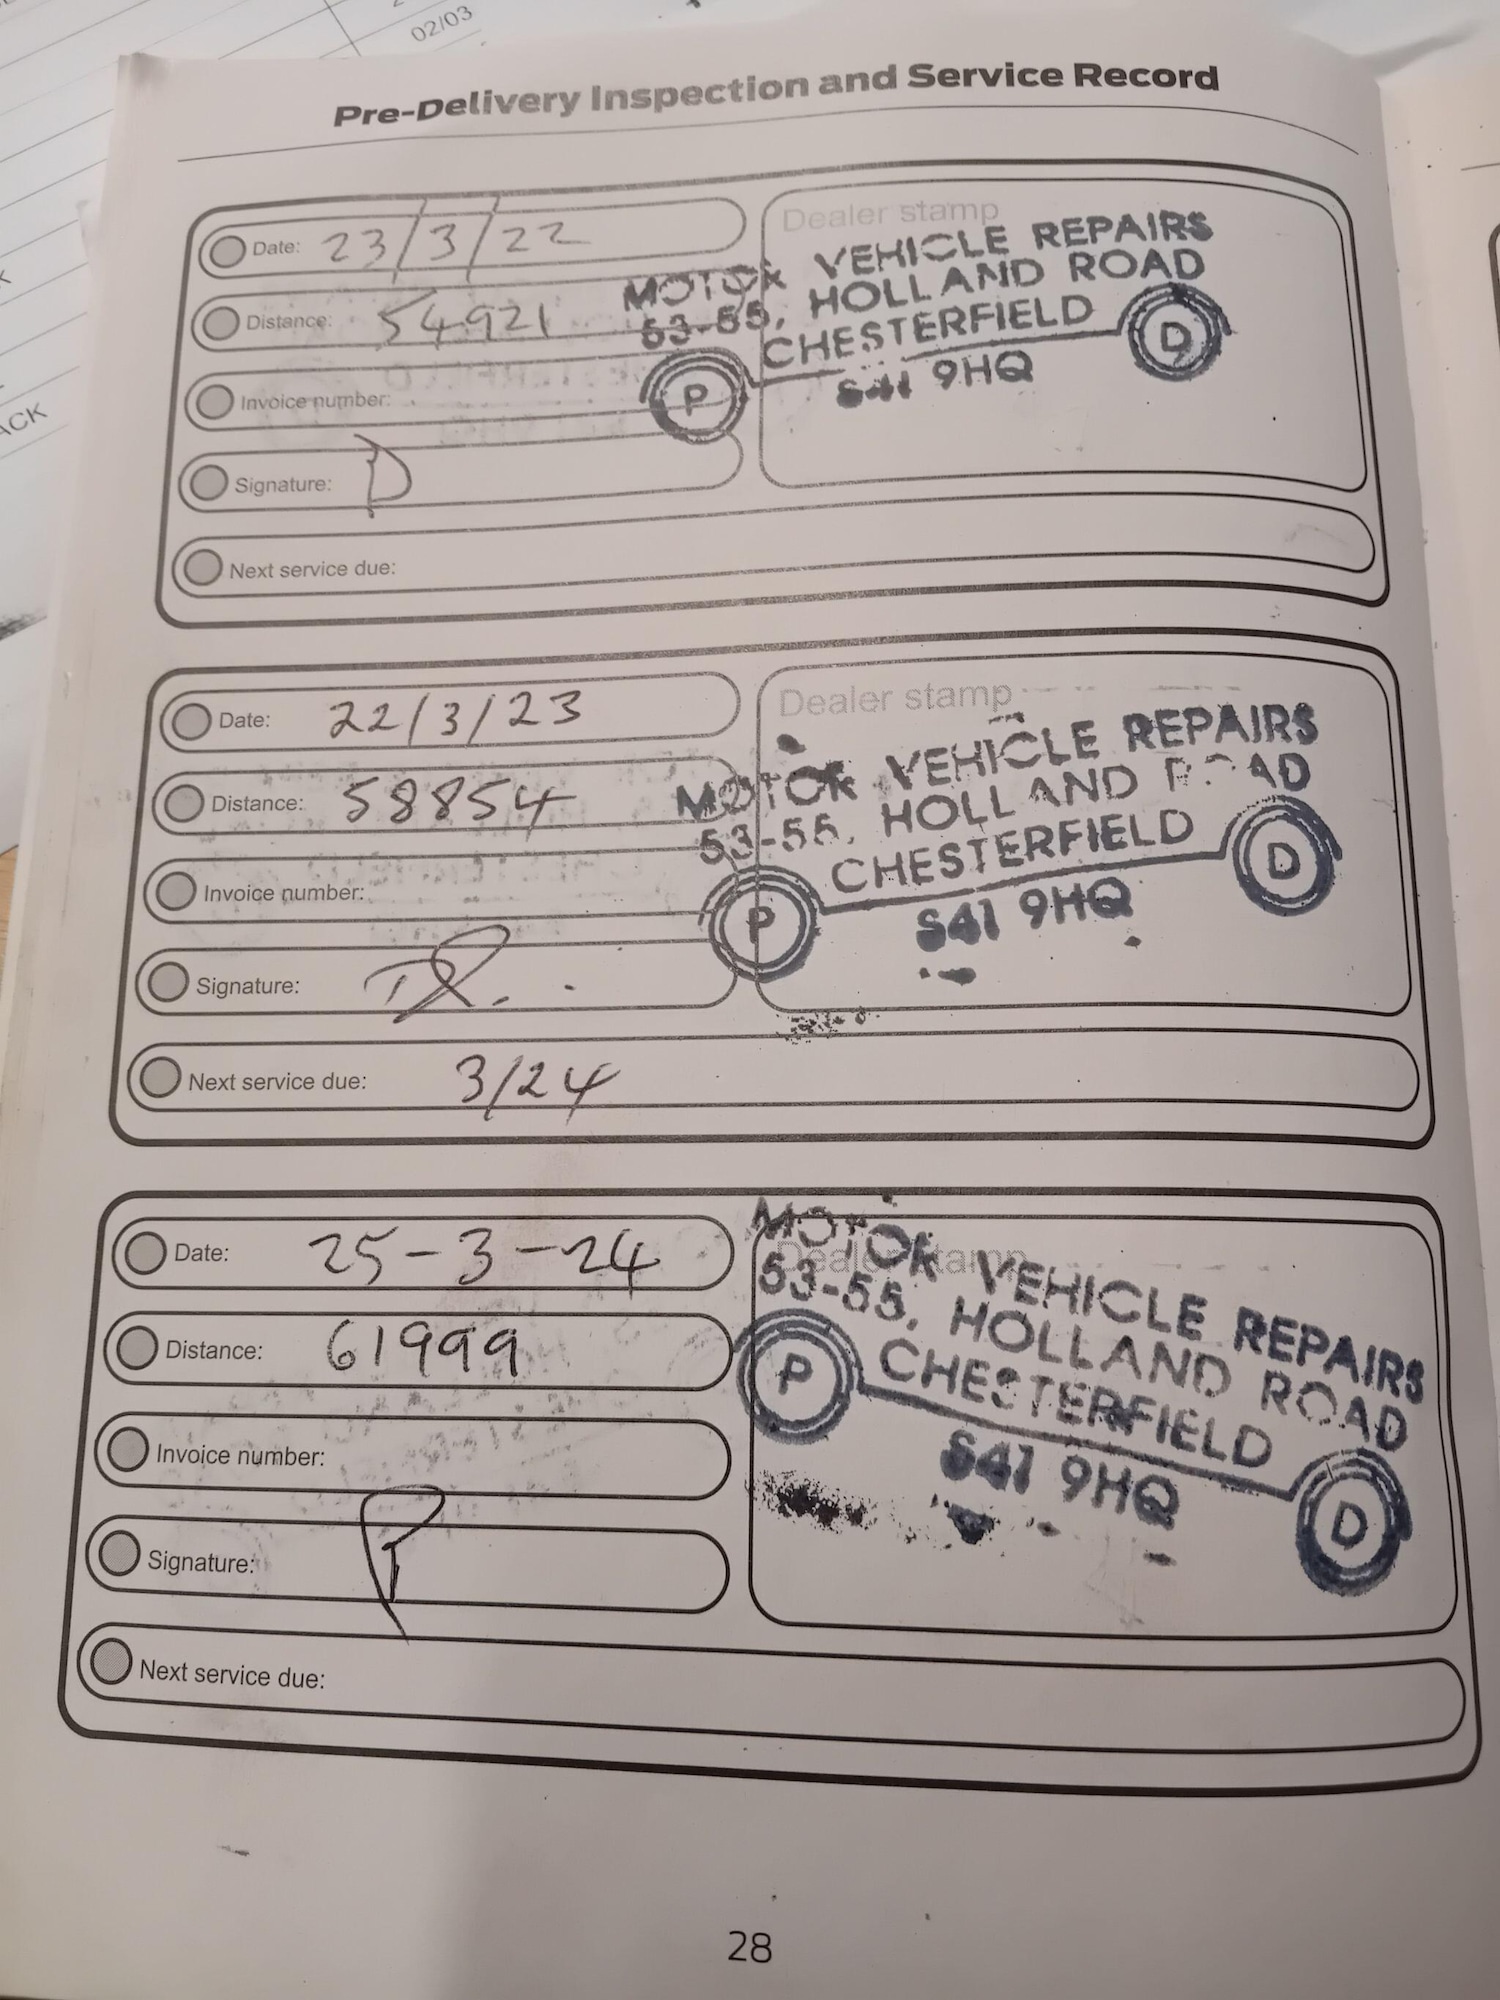 02/03
ACK
Pre-Delivery Inspection and Service Record
Date: 23/3/22
Distance: 54921
Invoice number:
Signature: D
Next service due:
Dealer stamp
MOTOR VEHICLE REPAIRS
53-55, HOLLAND ROAD
CHESTERFIELD
P D
S41 9HQ
Date: 22/3/23
Distance: 58854
Invoice number:
Signature:
Next service due: 3/24
Dealer stamp
MOTOR VEHICLE REPAIRS
53-55, HOLLAND ROAD
CHESTERFIELD
P D
S41 9HQ
Date: 25-3-24
Distance: 61999
Invoice number:
Signature:
Next service due:
Dealer stamp
MOTOR VEHICLE REPAIRS
53-55, HOLLAND ROAD
CHESTERFIELD
P D
S41 9HQ
28